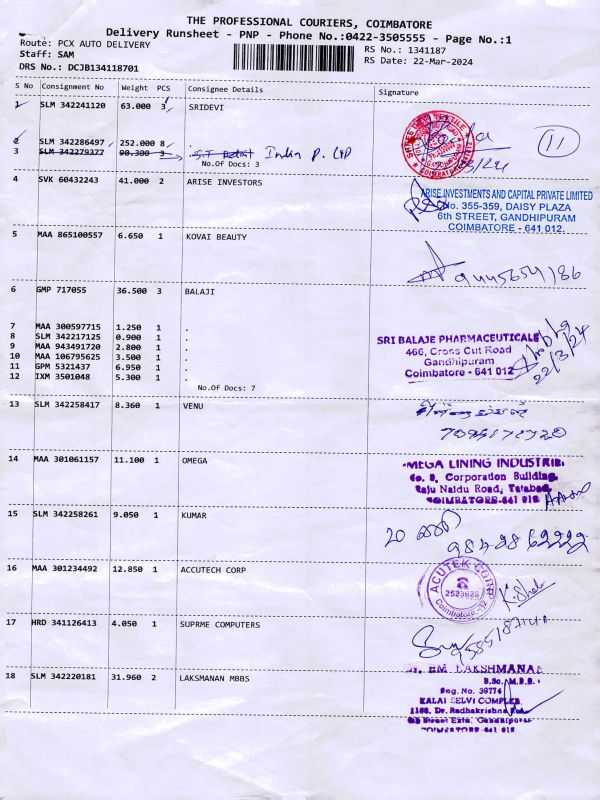 THE PROFESSIONAL COURIERS, COIMBATORE
Delivery Runsheet - PNP - Phone No.:0422-3505555 - Page No.:1
Route: PCX AUTO DELIVERY
RS No.: 1341187
Staff: SAM
RS Date: 22-Mar-2024
DRS No.: DCJB134118701
S No Consignment No Weight PCS Consignee Details Signature
1 SLM 342241120 63.000 3 SRIDEVI
2 SLM 342286497 252.000 8 .
11
3 SLM 342279377 00.300 3 India P. LTD
No.Of Docs: 3
4 SVK 60432243 41.000 2 ARISE INVESTORS
ARISE INVESTMENTS AND CAPITAL PRIVATE LIMITED
No. 355-359, DAISY PLAZA
6th STREET, GANDHIPURAM
COIMBATORE - 641 012.
5 MAA 865100557 6.650 1 KOVAI BEAUTY
6 GMP 717055 36.500 3 BALAJI
7 MAA 300597715 1.250 1 .
8 SLM 342217125 0.900 1 .
9 MAA 943491720 2.800 1 .
10 MAA 106795625 3.500 1 .
11 GPM 5321437 6.950 1 .
12 IXM 3501048 5.300 1 .
No.Of Docs: 7
SRI BALAJE PHARMACEUTICALS
466, Cross Cut Road
Gandhipuram
Coimbatore - 641 012
22/3/24
13 SLM 342258417 8.360 1 VENU
14 MAA 301061157 11.100 1 OMEGA
OMEGA LINING INDUSTRIE
No. 9, Corporation Building,
Raju Naidu Road, Tatabad,
COIMBATORE-641 012
15 SLM 342258261 9.050 1 KUMAR
16 MAA 301234492 12.850 1 ACCUTECH CORP
ACUTEK CORP
2523625
Coimbatore-12
17 HRD 341126413 4.050 1 SUPRME COMPUTERS
18 SLM 342220181 31.960 2 LAKSMANAN MBBS
Dr. RM. LAKSHMANA
B.Sc., M.B.B.
Reg. No. 39774
KALAI SELVI COMPLEX,
1158, Dr. Radhakrishna
Street Extn. Gandhipuram
COIMBATORE-641 012